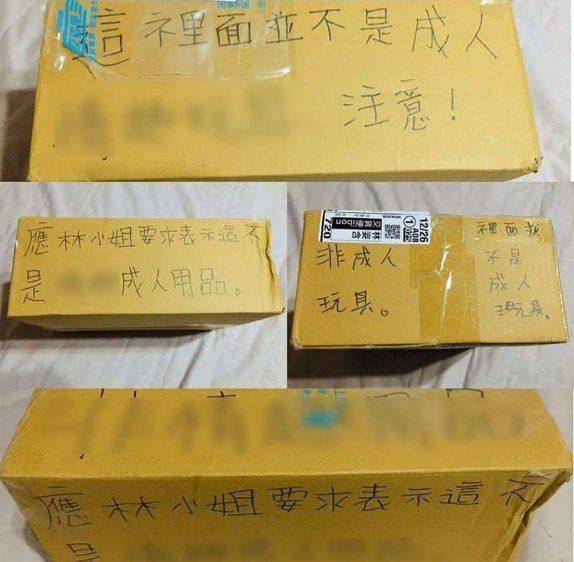 這裡面並不是成人
注意！
應林小姐要求表示這不
是
成人用品。
12/26
A08
①
720
非成人
玩具。
裡面並
不是
成人
玩具。
應林小姐要求表示這不
是